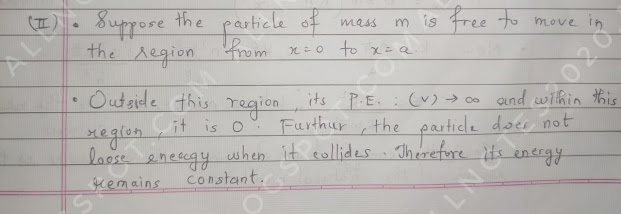 (II) • Suppose the particle of mass m is free to move in
the region from x=0 to x=a.
• Outside this region, its P.E. : (V) → ∞ and within this
region, it is 0. Furthur, the particle does not
loose eneagy when it collides. Therefore its energy
remains constant.